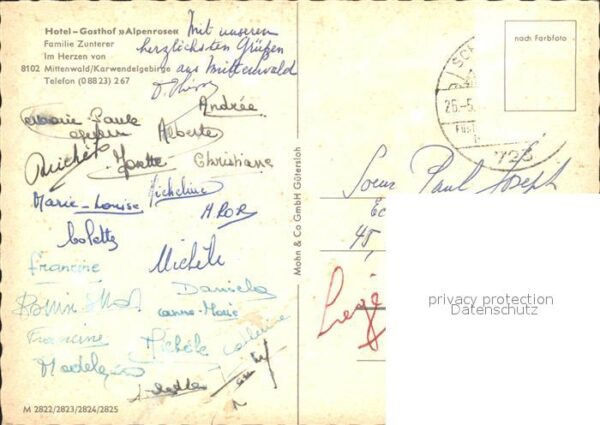 Hotel-Gasthof »Alpenrose«
Familie Zunterer
Im Herzen von
8102 Mittenwald/Karwendelgebirge
Telefon (0 88 23) 2 67
Mit unseren
herzlichsten Grüßen
aus Mittenwald
Andrée
Marie-Paule
Alberte
Michèle
Josette
Christiane
Micheline
Marie-Louise
Colette
Michèle
Francine
Daniela
Anne-Marie
Francine
Michèle Catherine
Madeleine
M 2822/2823/2824/2825
Mohn & Co GmbH Gütersloh
nach Farbfoto
25.-5.
Soeur Paul Joseph
45,
Liège
privacy protection
Datenschutz